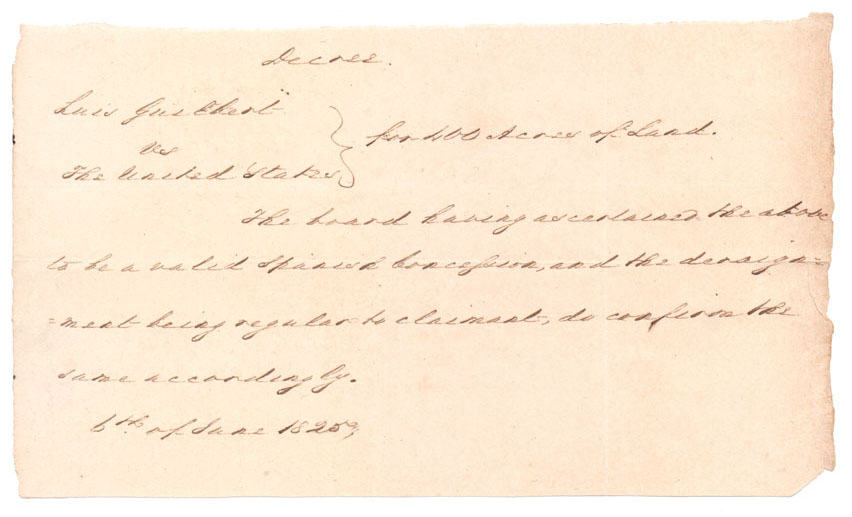 Decree.
Luis Guibert
vs
The United States
for 400 Acres of Land.
The board having ascertained the above
to be a valid Spanish Concession, and the deraign=
=ment being regular to claimant, do confirm the
same accordingly.
6th of June 1825,